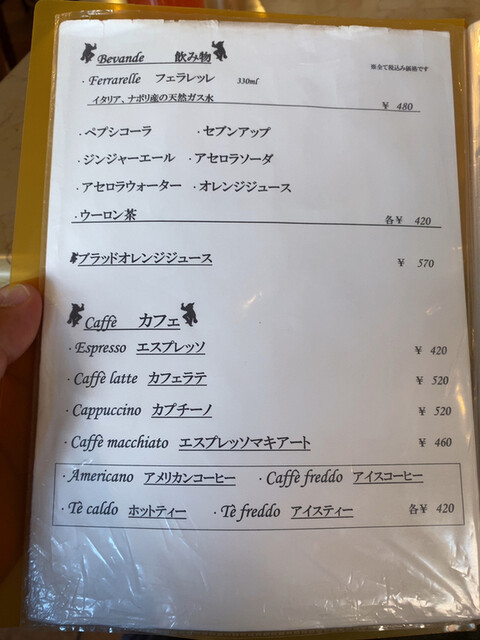 Bevande 飲み物
※全て税込み価格です
・Ferrarelle フェラレッレ 330ml
イタリア、ナポリ産の天然ガス水 ¥ 480
・ペプシコーラ ・セブンアップ
・ジンジャーエール ・アセロラソーダ
・アセロラウォーター ・オレンジジュース
・ウーロン茶 各¥ 420
ブラッドオレンジジュース ¥ 570
Caffê カフェ
・Espresso エスプレッソ ¥ 420
・Caffê latte カフェラテ ¥ 520
・Cappuccino カプチーノ ¥ 520
・Caffê macchiato エスプレッソマキアート ¥ 460
・Americano アメリカンコーヒー ・Caffê freddo アイスコーヒー
・Tê caldo ホットティー ・Tê freddo アイスティー 各¥ 420